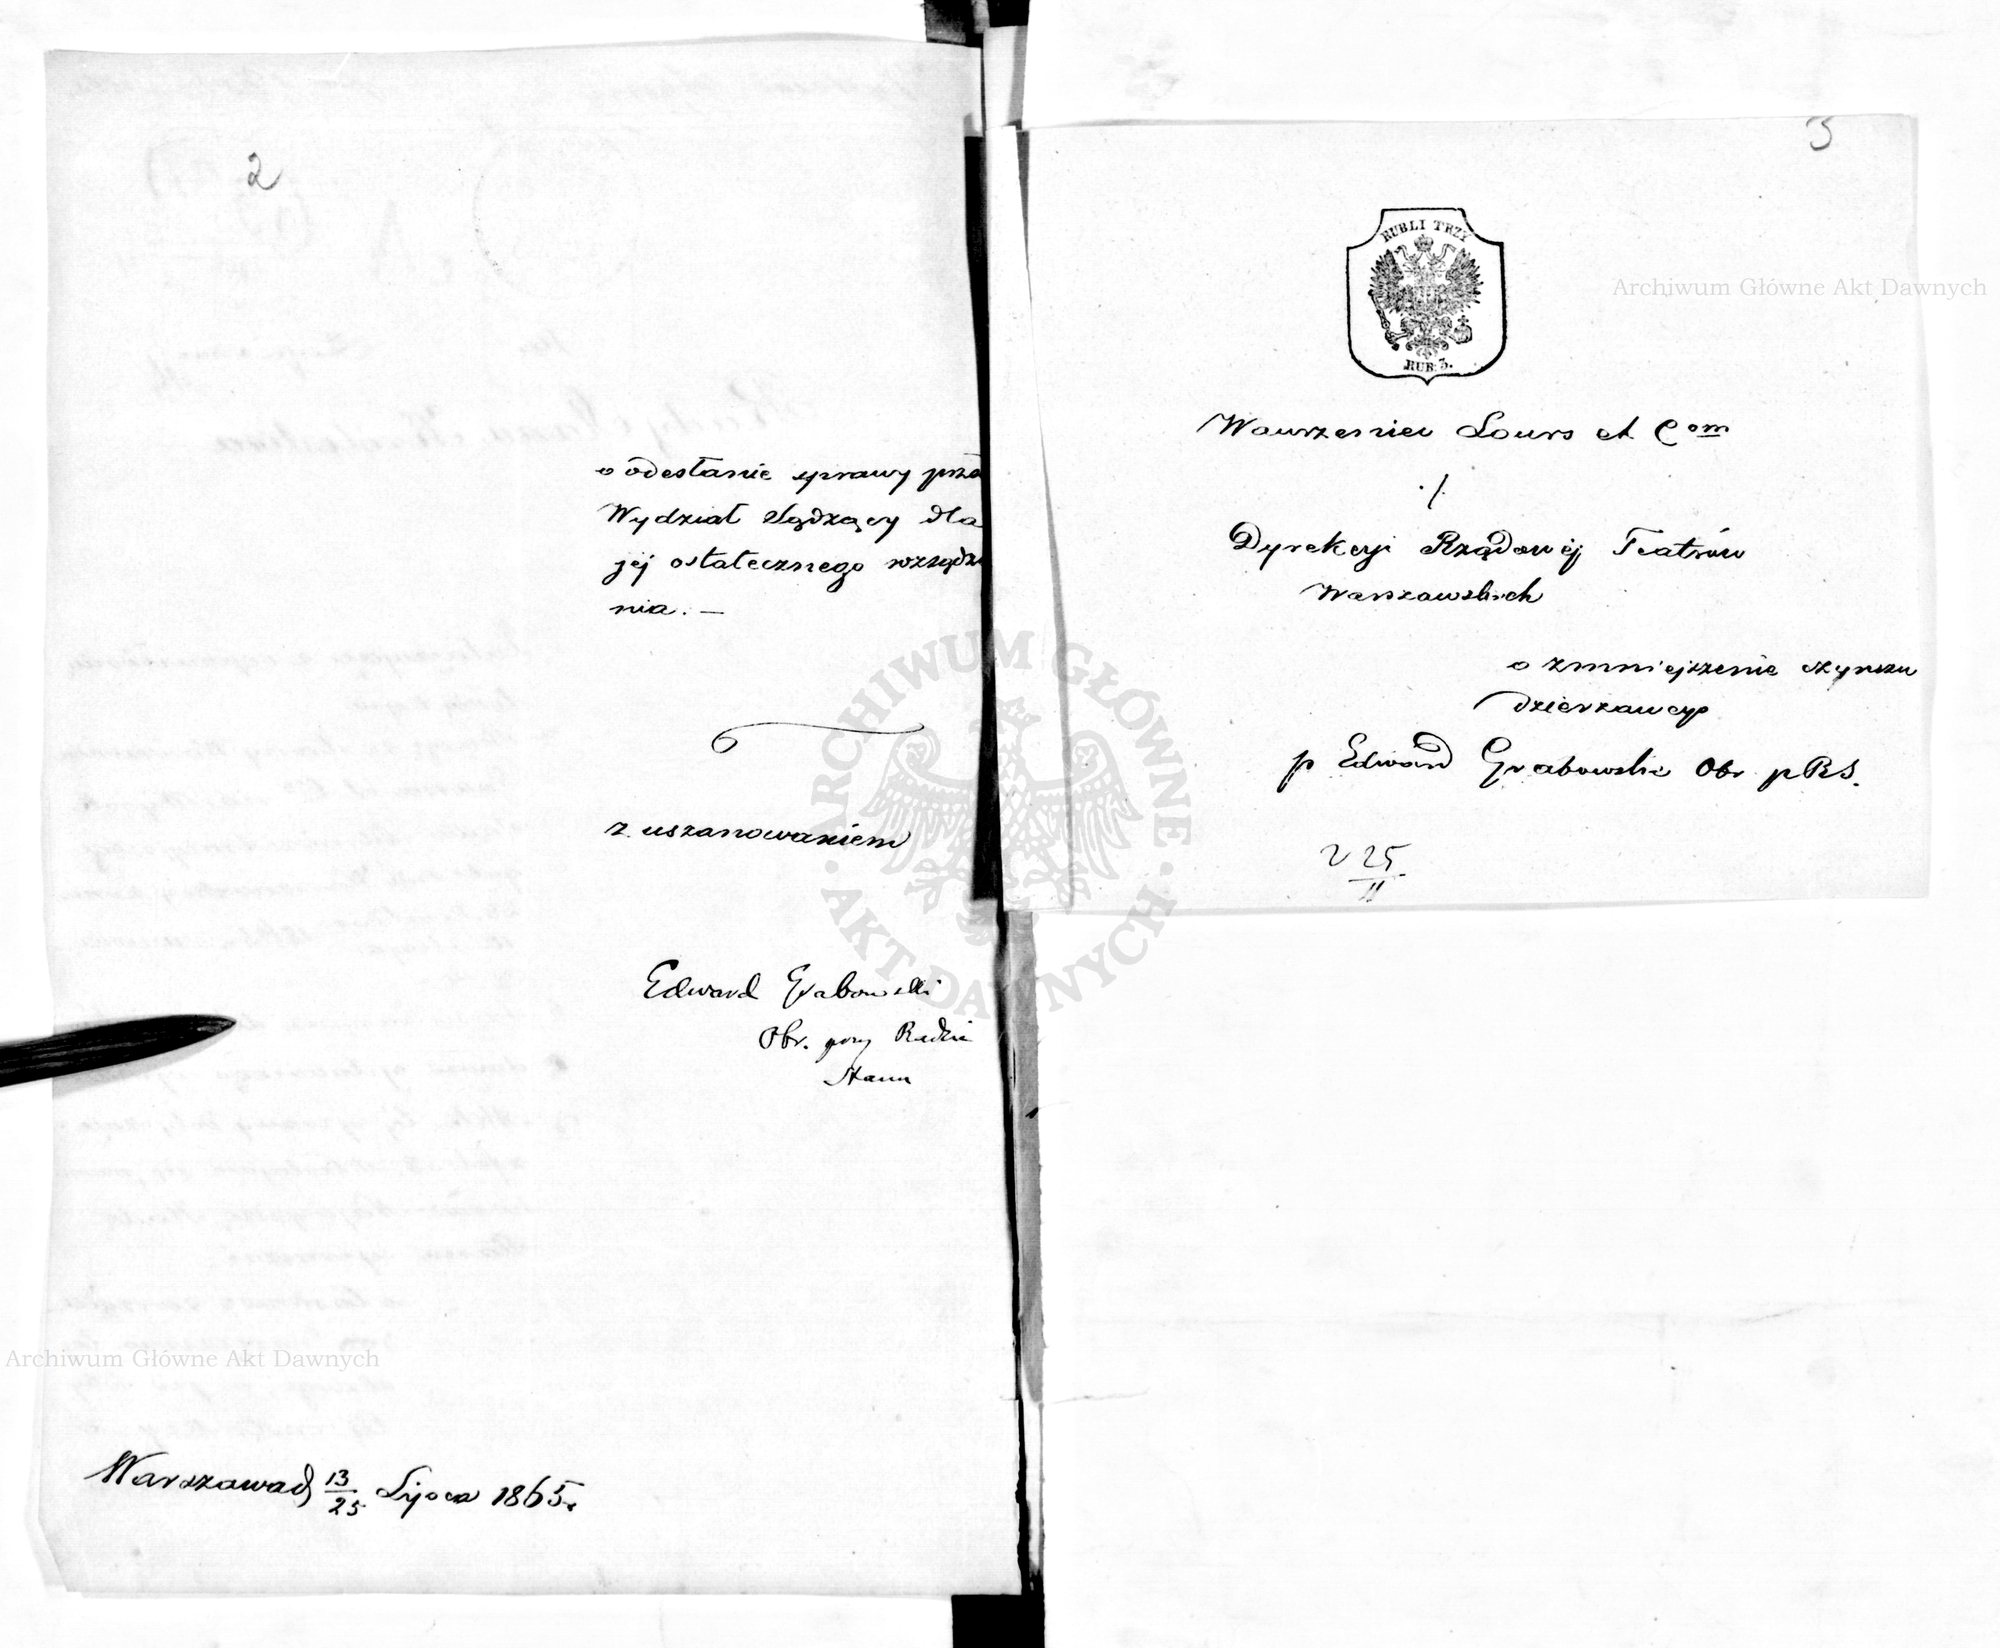 2
o odesłanie sprawy prze
Wydział Sądzący dla
jej ostatecznego rozsądze
nia. —
z uszanowaniem
Edward Grabowski
Obr. przy Radzie
Stanu
Warszawa d 13/25 Lipca 1865 r.
3
RUBLI TRZY
RUB: 3.
Wawrzeniec Lours et Com
./.
Dyrekcyi Rządowéj Teatrów
Warszawskich
o zmniejszenie czynszu
dzierzawcy
p Edward Grabowski Obr p RS.
25/II
Archiwum Główne Akt Dawnych
ARCHIWUM GŁÓWNE · AKT DAWNYCH ·
Archiwum Główne Akt Dawnych